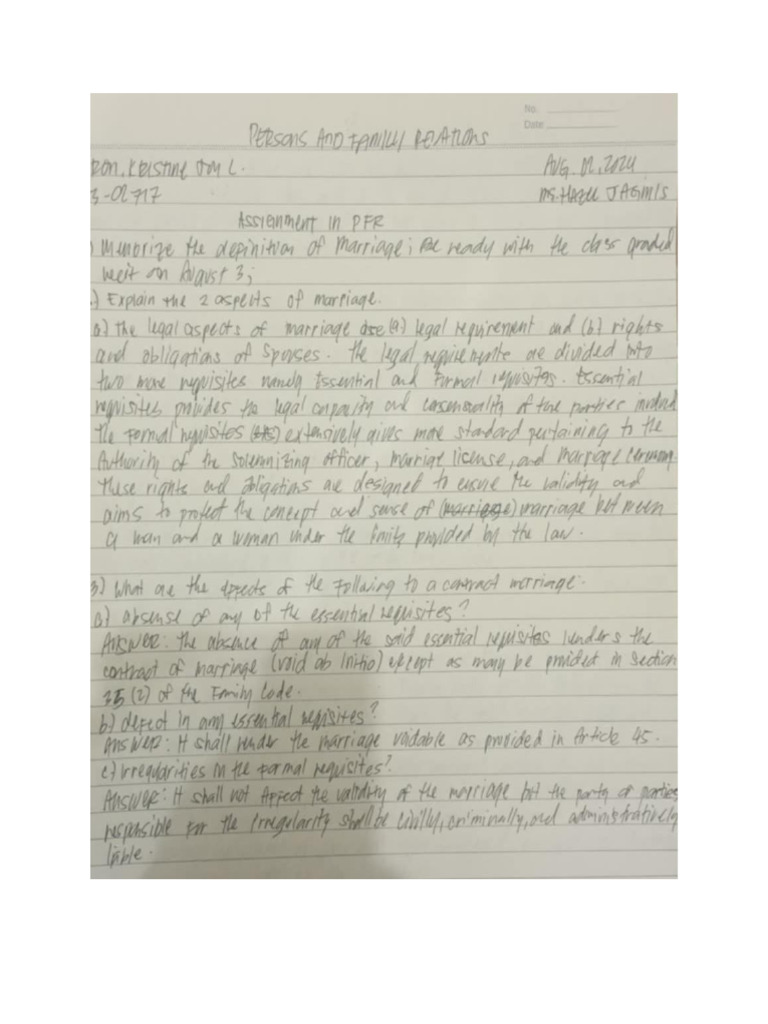 No.
Date:
PERSONS AND FAMILY RELATIONS
RON, KRISTINE JOY L. AUG. 02, 2024
3-02717 MS. HAZEL JAGMIS
ASSIGNMENT IN PFR
) Memorize the definition of marriage; Be ready with the class graded
on August 3;
.) Explain the 2 aspects of marriage.
a) The legal aspects of marriage are (a) legal requirement and (b) rights
and obligations of spouses. The legal requirements are divided into
two more requisites namely Essential and Formal requisites. Essential
requisites provides the legal capacity and consensuality of the parties involved
The Formal requisites extensively gives more standard pertaining to the
Authority of the solemnizing officer, marriage license, and marriage ceremony.
These rights and obligations are designed to ensure the validity and
aims to protect the concept and sense of (marriage) marriage between
a man and a woman under the limits provided by the law.
3) What are the effects of the following to a contract marriage.
a) absense of any of the essential requisites?
Answer: The absence of any of the said essential requisites renders the
contract of marriage (void ab initio) except as may be provided in section
35 (2) of the Family Code.
b) defect in any essential requisites?
Answer: It shall render the marriage voidable as provided in Article 45.
c) irregularities in the formal requisites?
Answer: It shall not Affect the validity of the marriage but the party or parties
responsible for the irregularity shall be civilly, criminally, and administratively
liable.